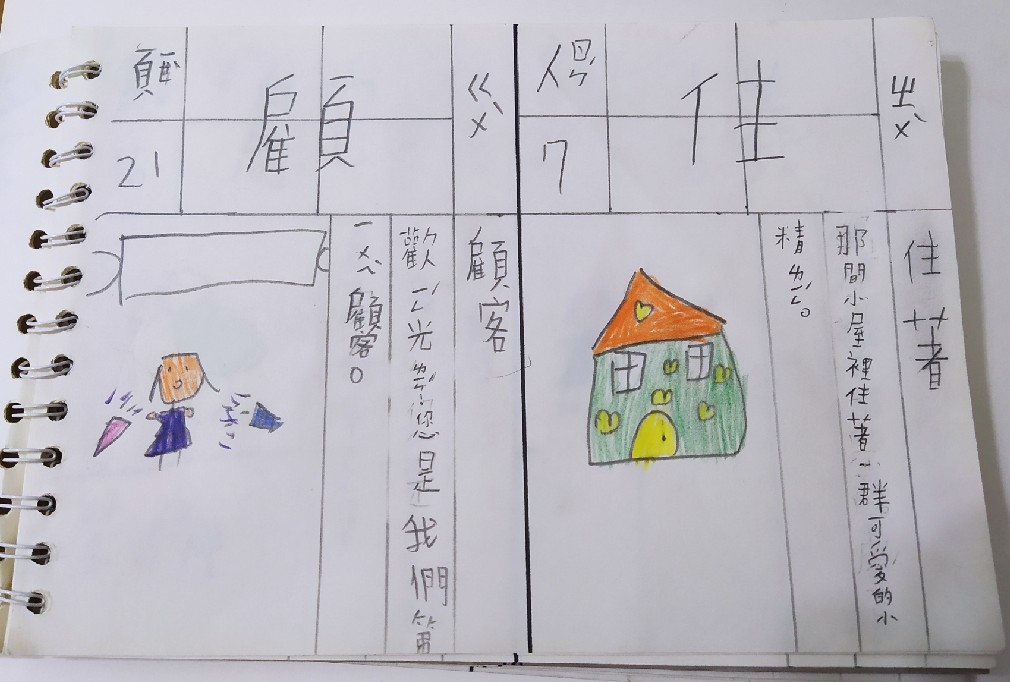 ㄓㄨˋ
住
人ㄖㄣˊ
7
住著
那間小屋裡住著一群可愛的小
精ㄌㄧㄥˊ。
ㄍㄨˋ
顧
頁ㄧㄝˋ
21
顧客
歡ㄧㄥˊ光ㄌㄧㄣˊ您是我們第
一ㄨㄟˋ顧客。